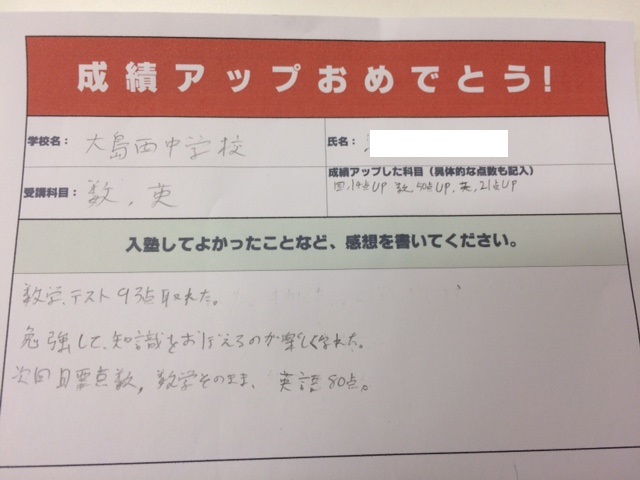 成績アップおめでとう!
学校名: 大島西中学校
氏名:
受講科目: 数, 英
成績アップした科目(具体的な点数も記入)
国,14点UP 数,50点UP, 英,21点UP
入塾してよかったことなど、感想を書いてください。
数学、テスト93点取れた。
勉強して、知識をおぼえるのが楽しくなれた。
次回目票点数, 数学そのまま、 英語80点。